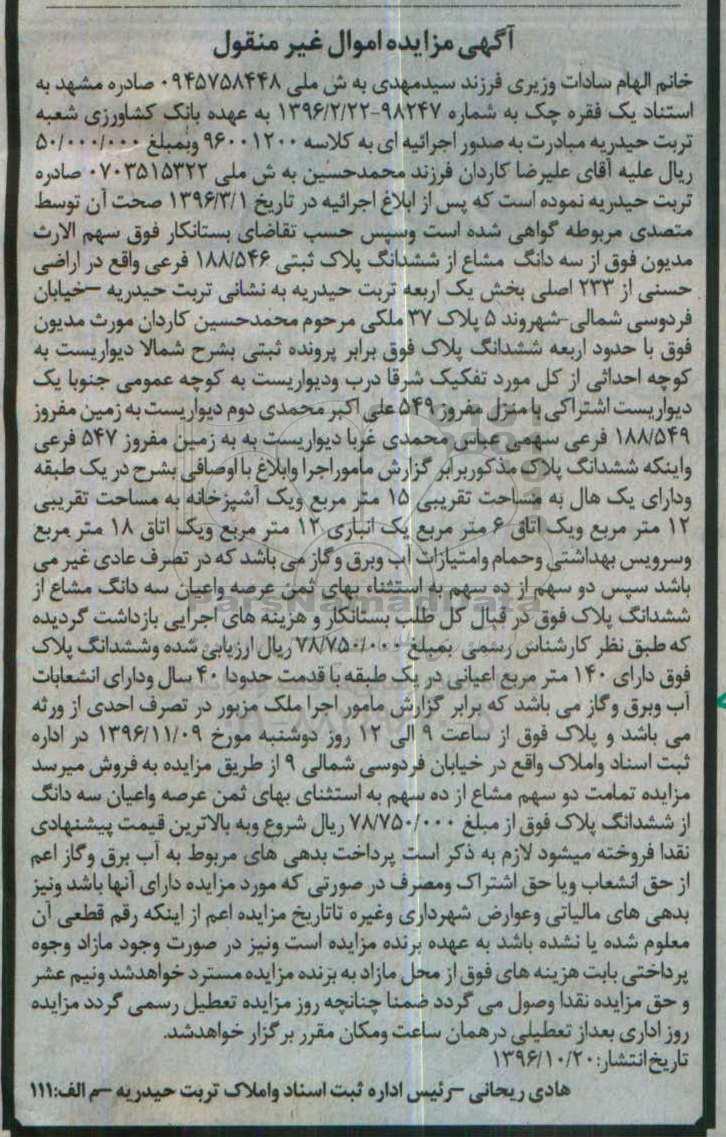 آگهی مزایده اموال غیر منقول
خانم الهام سادات وزیری فرزند سیدمهدی به ش ملی ۰۹۴۵۷۵۸۴۴۸ صادره مشهد به
استناد یک فقره چک به شماره ۹۸۲۴۷-۱۳۹۶/۲/۲۲ به عهده بانک کشاورزی شعبه
تربت حیدریه مبادرت به صدور اجرائیه ای به کلاسه ۹۶۰۰۱۲۰۰ وبمبلغ ۵۰/۰۰۰/۰۰۰
ریال علیه آقای علیرضا کاردان فرزند محمدحسین به ش ملی ۰۷۰۳۵۱۵۳۲۲ صادره
تربت حیدریه نموده است که پس از ابلاغ اجرائیه در تاریخ ۱۳۹۶/۳/۱ صحت آن توسط
متصدی مربوطه گواهی شده است وسپس حسب تقاضای بستانکار فوق سهم الارث
مدیون فوق از سه دانگ مشاع از ششدانگ پلاک ثبتی ۱۸۸/۵۴۶ فرعی واقع در اراضی
حسنی از ۲۳۳ اصلی بخش یک اربعه تربت حیدریه به نشانی تربت حیدریه –خیابان
فردوسی شمالی-شهروند ۵ پلاک ۳۷ ملکی مرحوم محمدحسین کاردان مورث مدیون
فوق با حدود اربعه ششدانگ پلاک فوق برابر پرونده ثبتی بشرح شمالا دیواریست به
کوچه احداثی از کل مورد تفکیک شرقا درب ودیواریست به کوچه عمومی جنوبا یک
دیواریست اشتراکی با منزل مفروز ۵۴۹ علی اکبر محمدی دوم دیواریست به زمین مفروز
۱۸۸/۵۴۹ فرعی سهمی عباس محمدی غربا دیواریست به به زمین مفروز ۵۴۷ فرعی
واینکه ششدانگ پلاک مذکوربرابر گزارش ماموراجرا وابلاغ با اوصافی بشرح در یک طبقه
ودارای یک هال به مساحت تقریبی ۱۵ متر مربع ویک آشپزخانه به مساحت تقریبی
۱۲ متر مربع ویک اتاق ۶ متر مربع یک انباری ۱۲ متر مربع ویک اتاق ۱۸ متر مربع
وسرویس بهداشتی وحمام وامتیازات آب وبرق وگاز می باشد که در تصرف عادی غیر می
باشد سپس دو سهم از ده سهم به استثناء بهای ثمن عرصه واعیان سه دانگ مشاع از
ششدانگ پلاک فوق در قبال کل طلب بستانکار و هزینه های اجرایی بازداشت گردیده
که طبق نظر کارشناس رسمی بمبلغ ۷۸/۷۵۰/۰۰۰ ریال ارزیابی شده وششدانگ پلاک
فوق دارای ۱۴۰ متر مربع اعیانی در یک طبقه با قدمت حدودا ۴۰ سال ودارای انشعابات
آب وبرق وگاز می باشد که برابر گزارش مامور اجرا ملک مزبور در تصرف احدی از ورثه
می باشد و پلاک فوق از ساعت ۹ الی ۱۲ روز دوشنبه مورخ ۱۳۹۶/۱۱/۰۹ در اداره
ثبت اسناد واملاک واقع در خیابان فردوسی شمالی ۹ از طریق مزایده به فروش میرسد
مزایده تمامت دو سهم مشاع از ده سهم به استثنای بهای ثمن عرصه واعیان سه دانگ
از ششدانگ پلاک فوق از مبلغ ۷۸/۷۵۰/۰۰۰ ریال شروع وبه بالاترین قیمت پیشنهادی
نقدا فروخته میشود لازم به ذکر است پرداخت بدهی های مربوط به آب برق وگاز اعم
از حق انشعاب ویا حق اشتراک ومصرف در صورتی که مورد مزایده دارای آنها باشد ونیز
بدهی های مالیاتی وعوارض شهرداری وغیره تاتاریخ مزایده اعم از اینکه رقم قطعی آن
معلوم شده یا نشده باشد به عهده برنده مزایده است ونیز در صورت وجود مازاد وجوه
پرداختی بابت هزینه های فوق از محل مازاد به برنده مزایده مسترد خواهدشد ونیم عشر
و حق مزایده نقدا وصول می گردد ضمنا چنانچه روز مزایده تعطیل رسمی گردد مزایده
روز اداری بعداز تعطیلی درهمان ساعت ومکان مقرر برگزار خواهدشد.
تاریخ انتشار: ۱۳۹۶/۱۰/۲۰
هادی ریحانی –رئیس اداره ثبت اسناد واملاک تربت حیدریه –م الف:۱۱۱
ParsNamadData